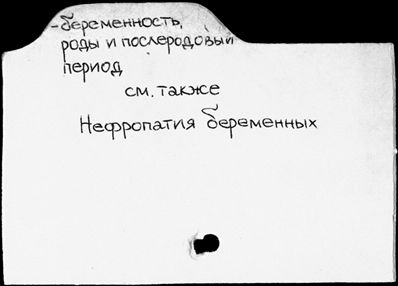 -беременность,
роды и послеродовый
период
см. также
Нефропатия беременных